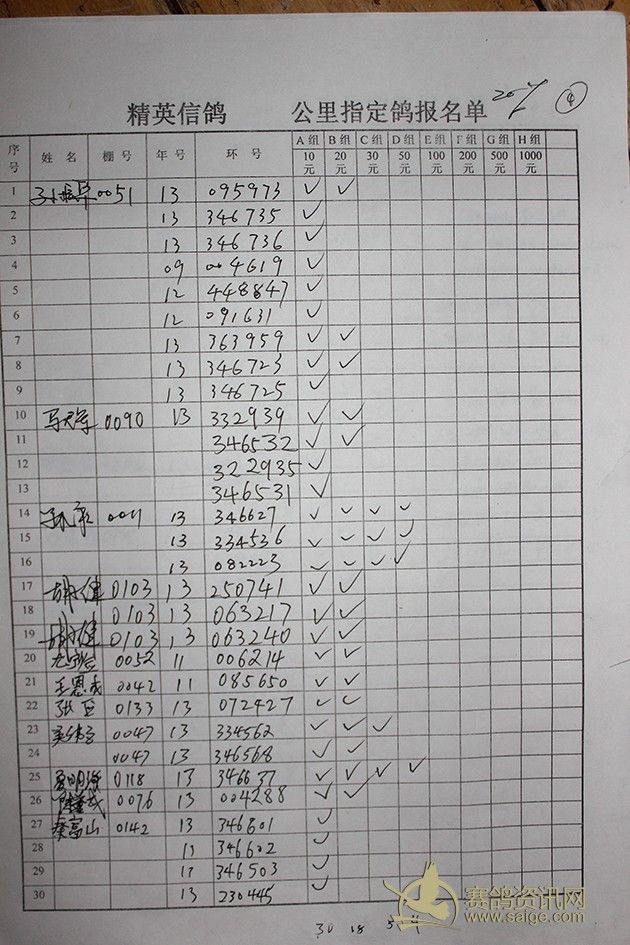 精英信鸽 公里指定鸽报名单 ④
序号 姓名 棚号 年号 环号 A组 10元 B组 20元 C组 30元 D组 50元 E组 100元 F组 200元 G组 500元 H组 1000元
1 0051 13 095973 ✓ ✓
2 13 346735 ✓
3 13 346736 ✓
4 09 004619 ✓
5 12 448847 ✓
6 12 091631 ✓
7 13 363959 ✓ ✓
8 13 346723 ✓ ✓
9 13 346725 ✓
10 0090 13 332939 ✓ ✓
11 346532 ✓ ✓
12 322935 ✓
13 346531 ✓
14 13 346627 ✓ ✓ ✓ ✓
15 13 334536 ✓ ✓ ✓ ✓
16 13 082223 ✓ ✓ ✓ ✓
17 0103 13 250741 ✓ ✓
18 0103 13 063217 ✓ ✓
19 0103 13 063240 ✓ ✓
20 0052 11 006214 ✓ ✓
21 王恩成 0042 11 085650 ✓ ✓
22 张臣 0133 13 072427 ✓ ✓
23 0047 13 334562 ✓ ✓ ✓
24 0047 13 346568 ✓ ✓
25 0118 13 346637 ✓ ✓ ✓ ✓
26 0076 13 004288 ✓ ✓
27 秦富山 0142 13 346601 ✓
28 346602 ✓
29 346503 ✓
30 13 230445 ✓
30 18 5 4
赛鸽资讯网
www.saige.com